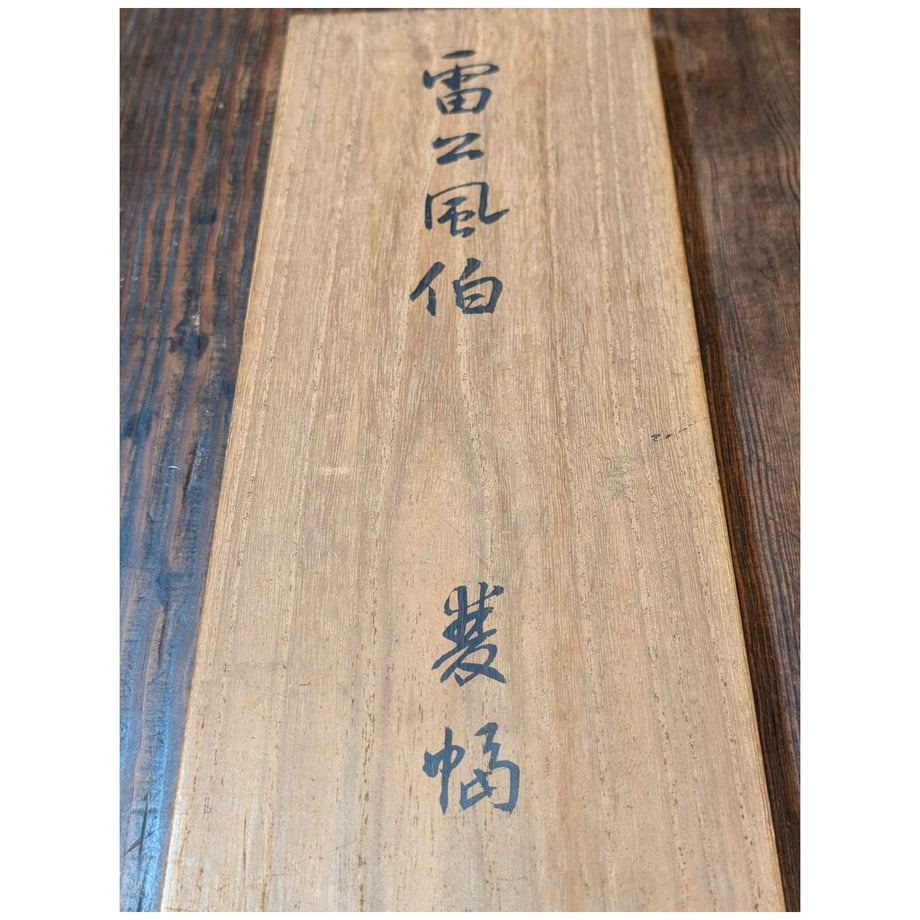 雷公風伯 雙幅